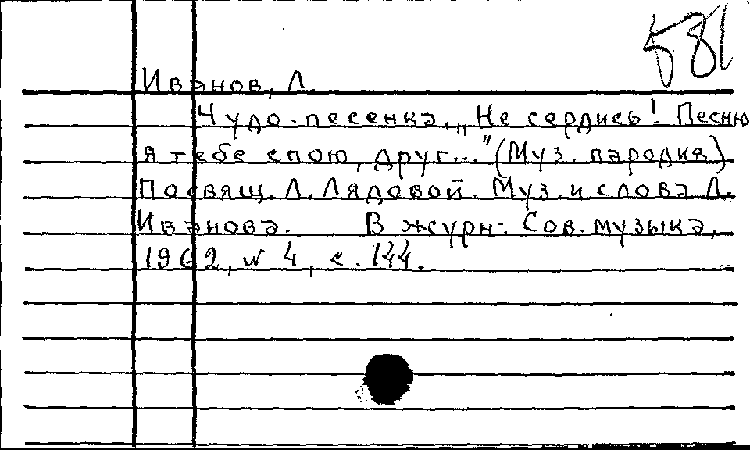 581
Иванов, Л.
Чудо-песенка. „Не сердись! Песню
я тебе спою, друг..." (Муз. пародия)
Посвящ. Л. Лядовой. Муз. и слова Л.
Иванова. В журн.: Сов. музыка,
1962, № 4, с. 144.